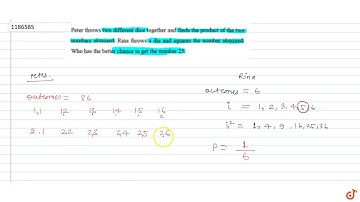 1186585
Peter throws two different dice together and finds the product of the two
numbers obtained. Rina throws a die and squares the number obtained.
Who has the better chance to get the number 25.
Peter.
outcomes = 36
1,1 1,2 1,3 1,4 1,5 1,6
2,1 2,2 2,3 2,4 2,5 2,6
Rina
outcomes = 6
i = 1, 2, 3, 4, 5, 6
i² = 1, 4, 9, 16, 25, 36
P = 1/6